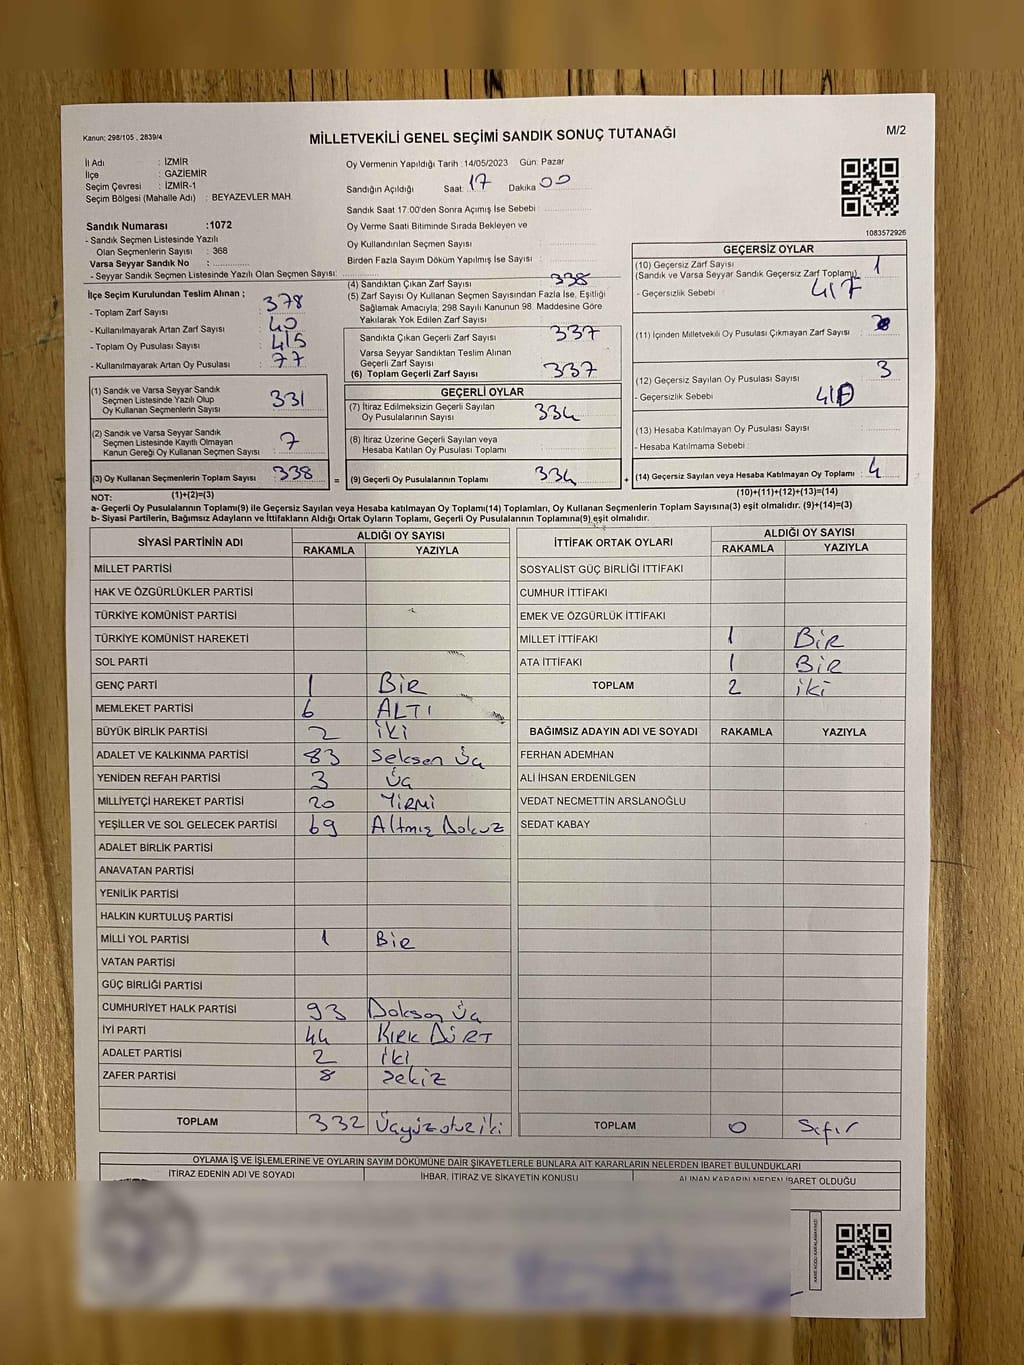 Kanun; 298/105 , 2839/4
MİLLETVEKİLİ GENEL SEÇİMİ SANDIK SONUÇ TUTANAĞI
M/2
İl Adı : İZMİR
İlçe : GAZİEMİR
Seçim Çevresi : İZMİR-1
Seçim Bölgesi (Mahalle Adı) : BEYAZEVLER MAH.
Oy Vermenin Yapıldığı Tarih :14/05/2023 Gün: Pazar
Sandığın Açıldığı Saat: 17 Dakika 00
Sandık Saat 17.00'den Sonra Açımış İse Sebebi :
Oy Verme Saati Bitiminde Sırada Bekleyen ve
Oy Kullandırılan Seçmen Sayısı
Birden Fazla Sayım Döküm Yapılmış İse Sayısı :
1083572926
Sandık Numarası :1072
- Sandık Seçmen Listesinde Yazılı
Olan Seçmenlerin Sayısı : 368
Varsa Seyyar Sandık No :
- Seyyar Sandık Seçmen Listesinde Yazılı Olan Seçmen Sayısı:
İlçe Seçim Kurulundan Teslim Alınan ;
- Toplam Zarf Sayısı : 378
- Kullanılmayarak Artan Zarf Sayısı : 40
- Toplam Oy Pusulası Sayısı : 415
- Kullanılmayarak Artan Oy Pusulası : 77
(1) Sandık ve Varsa Seyyar Sandık
Seçmen Listesinde Yazılı Olup
Oy Kullanan Seçmenlerin Sayısı 331
(2) Sandık ve Varsa Seyyar Sandık
Seçmen Listesinde Kayıtlı Olmayan
Kanun Gereği Oy Kullanan Seçmen Sayısı 7
(3) Oy Kullanan Seçmenlerin Toplam Sayısı 338 =
(4) Sandıktan Çıkan Zarf Sayısı 338
(5) Zarf Sayısı Oy Kullanan Seçmen Sayısından Fazla İse, Eşitliği
Sağlamak Amacıyla; 298 Sayılı Kanunun 98. Maddesine Göre
Yakılarak Yok Edilen Zarf Sayısı
Sandıkta Çıkan Geçerli Zarf Sayısı 337
Varsa Seyyar Sandıktan Teslim Alınan
Geçerli Zarf Sayısı
(6) Toplam Geçerli Zarf Sayısı 337
GEÇERLİ OYLAR
(7) İtiraz Edilmeksizin Geçerli Sayılan
Oy Pusulalarının Sayısı 334
(8) İtiraz Üzerine Geçerli Sayılan veya
Hesaba Katılan Oy Pusulası Toplamı
(9) Geçerli Oy Pusulalarının Toplamı 334 +
GEÇERSİZ OYLAR
(10) Geçersiz Zarf Sayısı 1
(Sandık ve Varsa Seyyar Sandık Geçersiz Zarf Toplamı)
- Geçersizlik Sebebi
(11) İçinden Milletvekili Oy Pusulası Çıkmayan Zarf Sayısı
(12) Geçersiz Sayılan Oy Pusulası Sayısı 3
- Geçersizlik Sebebi
(13) Hesaba Katılmayan Oy Pusulası Sayısı
- Hesaba Katılmama Sebebi :
(14) Geçersiz Sayılan veya Hesaba Katılmayan Oy Toplamı 4
NOT: (1)+(2)=(3)
(10)+(11)+(12)+(13)=(14)
a- Geçerli Oy Pusulalarının Toplamı(9) ile Geçersiz Sayılan veya Hesaba Katılmayan Oy Toplamı(14) Toplamları, Oy Kullanan Seçmenlerin Toplam Sayısına(3) eşit olmalıdır. (9)+(14)=(3)
b- Siyasi Partilerin, Bağımsız Adayların ve İttifakların Aldığı Ortak Oyların Toplamı, Geçerli Oy Pusulalarının Toplamına(9) eşit olmalıdır.
SİYASİ PARTİNİN ADI
ALDIĞI OY SAYISI
RAKAMLA YAZIYLA
MİLLET PARTİSİ
HAK VE ÖZGÜRLÜKLER PARTİSİ
TÜRKİYE KOMÜNİST PARTİSİ
TÜRKİYE KOMÜNİST HAREKETİ
SOL PARTİ
GENÇ PARTİ 1 BiR
MEMLEKET PARTİSİ 6 ALTI
BÜYÜK BİRLİK PARTİSİ 2 iKi
ADALET VE KALKINMA PARTİSİ 83 Seksen Üç
YENİDEN REFAH PARTİSİ 3 Üç
MİLLİYETÇİ HAREKET PARTİSİ 20 YiRMi
YEŞİLLER VE SOL GELECEK PARTİSİ 69 Altmış Dokuz
ADALET BİRLİK PARTİSİ
ANAVATAN PARTİSİ
YENİLİK PARTİSİ
HALKIN KURTULUŞ PARTİSİ
MİLLİ YOL PARTİSİ 1 Bir
VATAN PARTİSİ
GÜÇ BİRLİĞİ PARTİSİ
CUMHURİYET HALK PARTİSİ 93 Doksan Üç
İYİ PARTİ 44 KIRK DÖRT
ADALET PARTİSİ 2 iki
ZAFER PARTİSİ 8 Sekiz
TOPLAM 332 Üçyüzotuziki
İTTİFAK ORTAK OYLARI
ALDIĞI OY SAYISI
RAKAMLA YAZIYLA
SOSYALİST GÜÇ BİRLİĞİ İTTİFAKI
CUMHUR İTTİFAKI
EMEK VE ÖZGÜRLÜK İTTİFAKI
MİLLET İTTİFAKI 1 BiR
ATA İTTİFAKI 1 BiR
TOPLAM 2 iki
BAĞIMSIZ ADAYIN ADI VE SOYADI RAKAMLA YAZIYLA
FERHAN ADEMHAN
ALİ İHSAN ERDENİLGEN
VEDAT NECMETTİN ARSLANOĞLU
SEDAT KABAY
TOPLAM 0 Sıfır
OYLAMA İŞ VE İŞLEMLERİNE VE OYLARIN SAYIM DÖKÜMÜNE DAİR ŞİKAYETLERLE BUNLARA AİT KARARLARIN NELERDEN İBARET BULUNDUKLARI
İTİRAZ EDENİN ADI VE SOYADI İHBAR, İTİRAZ VE ŞİKAYETİN KONUSU ALINAN KARARIN NEDEN İBARET OLDUĞU